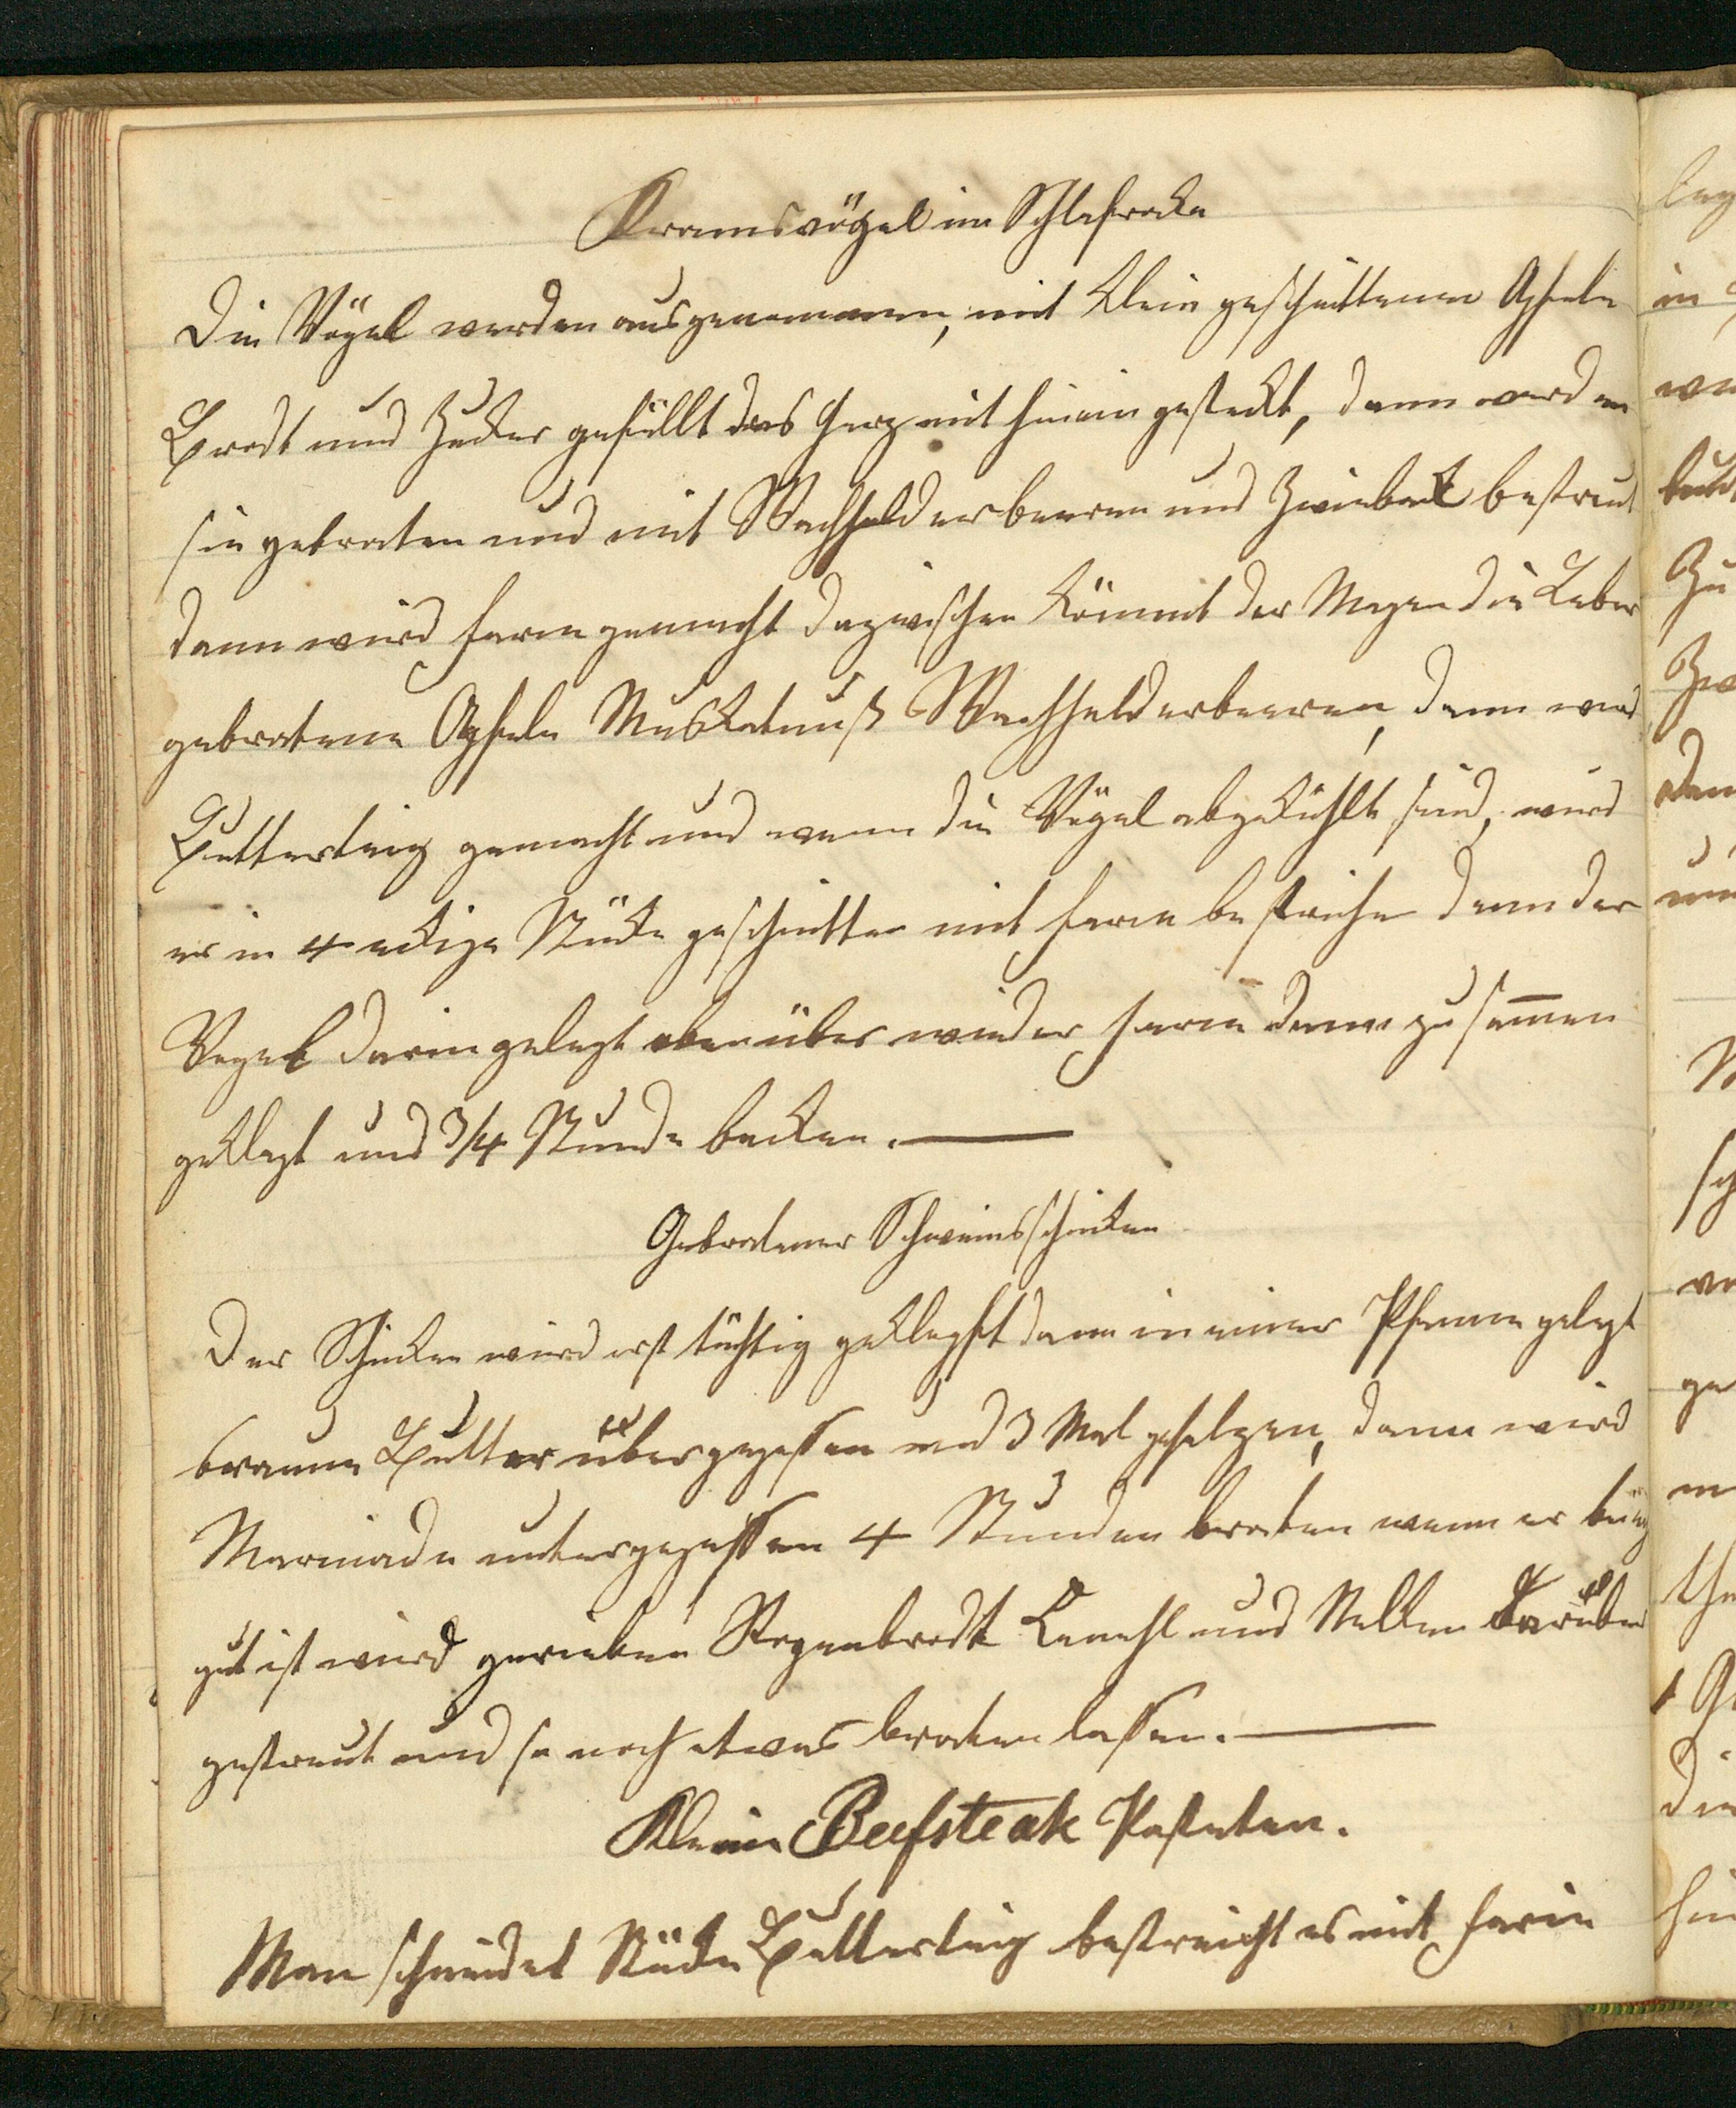 Kramsvögel im Schlafrocke
Die Vögel werden ausgenommen, mit klein geschnittenen Apfeln
Brodt und Zucker gefüllt das Herz mit hinein gesteckt, dann werden
sie gebraten und mit Wachholderbeeren und Zwieback bestreut
dann wird farce gemacht dazwischen kömmt der Magen die Leber
gebratene Apfeln Muskatnuß Wachholderbeeren, dann wird
Butterteig gemacht und wenn die Vögel abgekühlt sind, wird
er in 4 eckige Stücke geschnitten mit farce bestrichen dann der
Vogel darin gelegt oben über wieder farce dann zusammen
geklapt und 3/4 Stunde backen.
Gebratener Schweinsschinken
Der Schinken wird erst tüchtig geklopft dann in einer Pfanne gelegt
braune Butter übergegossen und 3 Mal gesalzen, dann wird
Marinade untergegossen 4 Stunden braten wenn er
gut ist wird gerieben Rogenbrodt Kanehl und Nelken darüber
gestreut und so noch etwas braten lassen.
Kleine Beefsteak Pasteten.
Man schneidet Stücke Butterteig bestreicht es mit farce